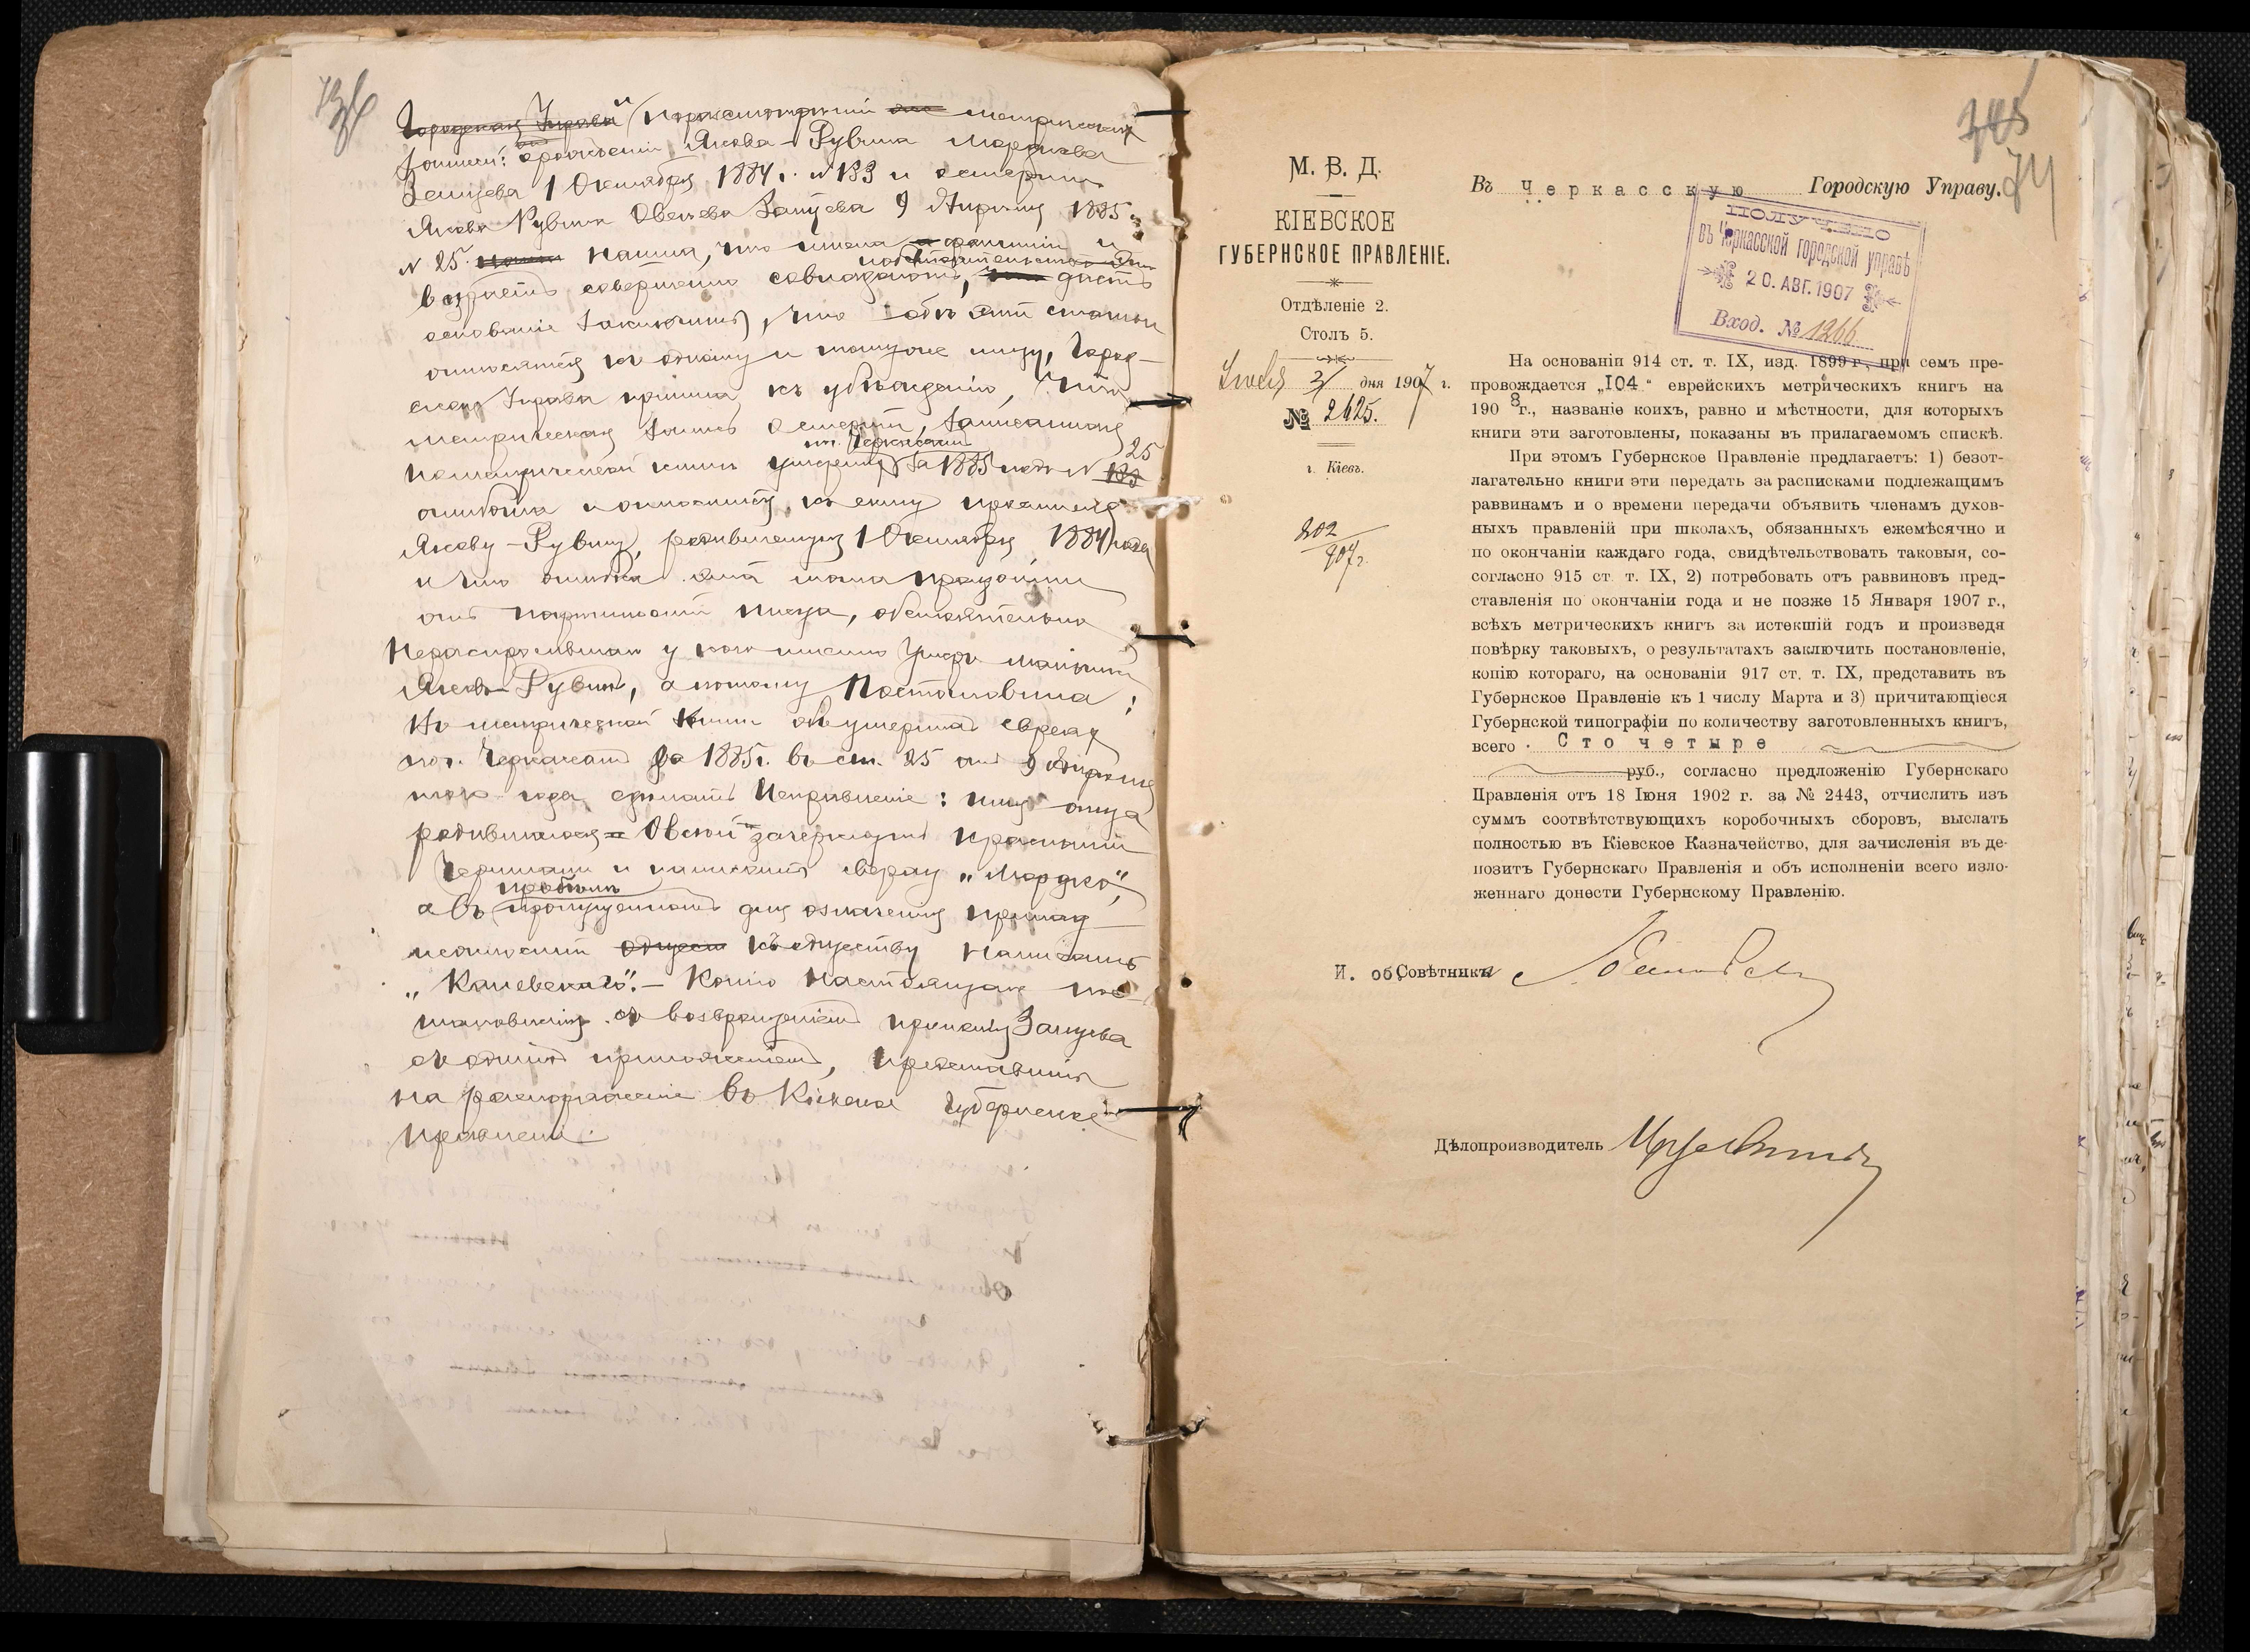 Городская Управа разсмотрѣвъ метрическія
записи: о рожденіи Якова-Рувина Мордкова
Запуева 1 Октября 1884 г. № 133 и о смерти
Якова Рувина Овсеева Запуева 9 Апрѣля 1885 г.
№ 25 нашла, что имена и фамиліи и
возрастъ совершенно совпадаютъ, даетъ
основаніе заключить, что обѣ эти статьи
относятся къ одному и тому же лицу, Город-
ская Управа пришла къ убѣжденію, что
метрическая запись о смерти, записанная
по метрической книгѣ умершихъ м. Черкассамъ за 1885 годъ № 133 25
ошибочна и относится къ сыну просителя
Якову-Рувину, родившемуся 1 Октября 1884 года
и что ошибка эта могла произойти
отъ писца, обстоятельно
у кого именно умеръ мальчикъ
Яковъ-Рувинъ, а потому Постановила:
Въ метрической книгѣ объ умершихъ евреяхъ
по г. Черкассамъ за 1885 г. въ ст. 25 отъ 9 Апрѣля
того года сдѣлать исправленіе: имя отца
„Овсей“ зачеркнуть красными
чернилами и написать сверху „Мордко“,
а въ пробѣлѣ пропущенномъ для означенія принад-
лежности къ обществу написать
„Каневскаго“. – Копію настоящаго пос-
тановленія съ возвращеніемъ прошенія Запуева
съ однимъ приложеніемъ, представить
на распоряженіе въ Кіевское Губернское
Правленіе.
74
М. В. Д.
КІЕВСКОЕ
ГУБЕРНСКОЕ ПРАВЛЕНІЕ.
Отдѣленіе 2.
Столъ 5.
31 дня 1907 г.
№ 2625.
г. Кіевъ.
202
907 г.
Въ Черкасскую Городскую Управу.
ПОЛУЧЕНО
въ Черкасской городской управѣ
20. АВГ. 1907
Вход. № 1266
На основаніи 914 ст. т. IX, изд. 1899 г., при семъ пре-
провождается „104“ еврейскихъ метрическихъ книгъ на
1908 г., названіе коихъ, равно и мѣстности, для которыхъ
книги эти заготовлены, показаны въ прилагаемомъ спискѣ.
При этомъ Губернское Правленіе предлагаетъ: 1) безот-
лагательно книги эти передать за расписками подлежащимъ
раввинамъ и о времени передачи объявить членамъ духов-
ныхъ правленій при школахъ, обязанныхъ ежемѣсячно и
по окончаніи каждаго года, свидѣтельствовать таковыя, со-
согласно 915 ст. т. IX, 2) потребовать отъ раввиновъ пред-
ставленія по окончаніи года и не позже 15 Января 1907 г.,
всѣхъ метрическихъ книгъ за истекшій годъ и произведя
повѣрку таковыхъ, о результатахъ заключить постановленіе,
копію котораго, на основаніи 917 ст. т. IX, представить въ
Губернское Правленіе къ 1 числу Марта и 3) причитающіеся
Губернской типографіи по количеству заготовленныхъ книгъ,
всего Сто четыре
руб., согласно предложенію Губернскаго
Правленія отъ 18 Іюня 1902 г. за № 2443, отчислить изъ
суммъ соотвѣтствующихъ коробочныхъ сборовъ, выслать
полностью въ Кіевское Казначейство, для зачисленія въ де-
позитъ Губернскаго Правленія и объ исполненіи всего изло-
женнаго донести Губернскому Правленію.
И. об. Совѣтника
Дѣлопроизводитель